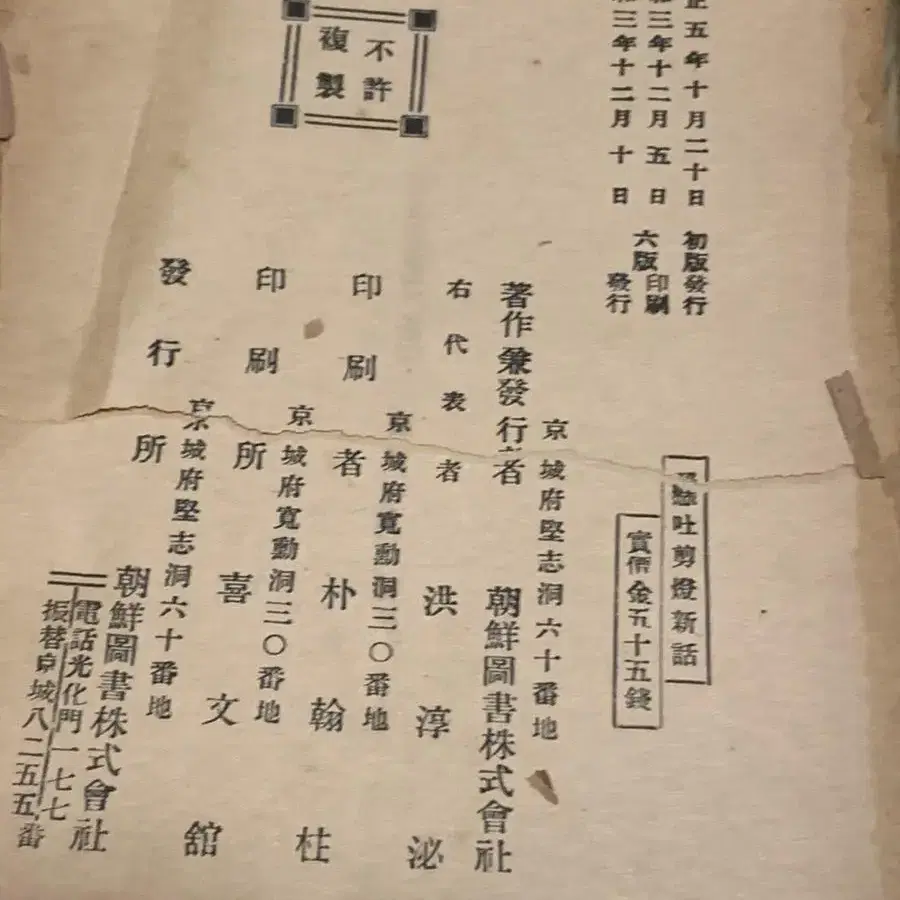 正五年十月二十日 初版發行
三年十二月五日 六版印刷
三年十二月十日 發行
不許
複製
吐剪燈新話
實價金五十五錢
京城府堅志洞六十番地
著作兼發行者 朝鮮圖書株式會社
右代表者 洪淳泌
京城府寬勳洞三〇番地
印刷者 朴翰柱
京城府寬勳洞三〇番地
印刷所 喜文舘
京城府堅志洞六十番地
發行所 朝鮮圖書株式會社
電話光化門一七七
振替京城八二五五番